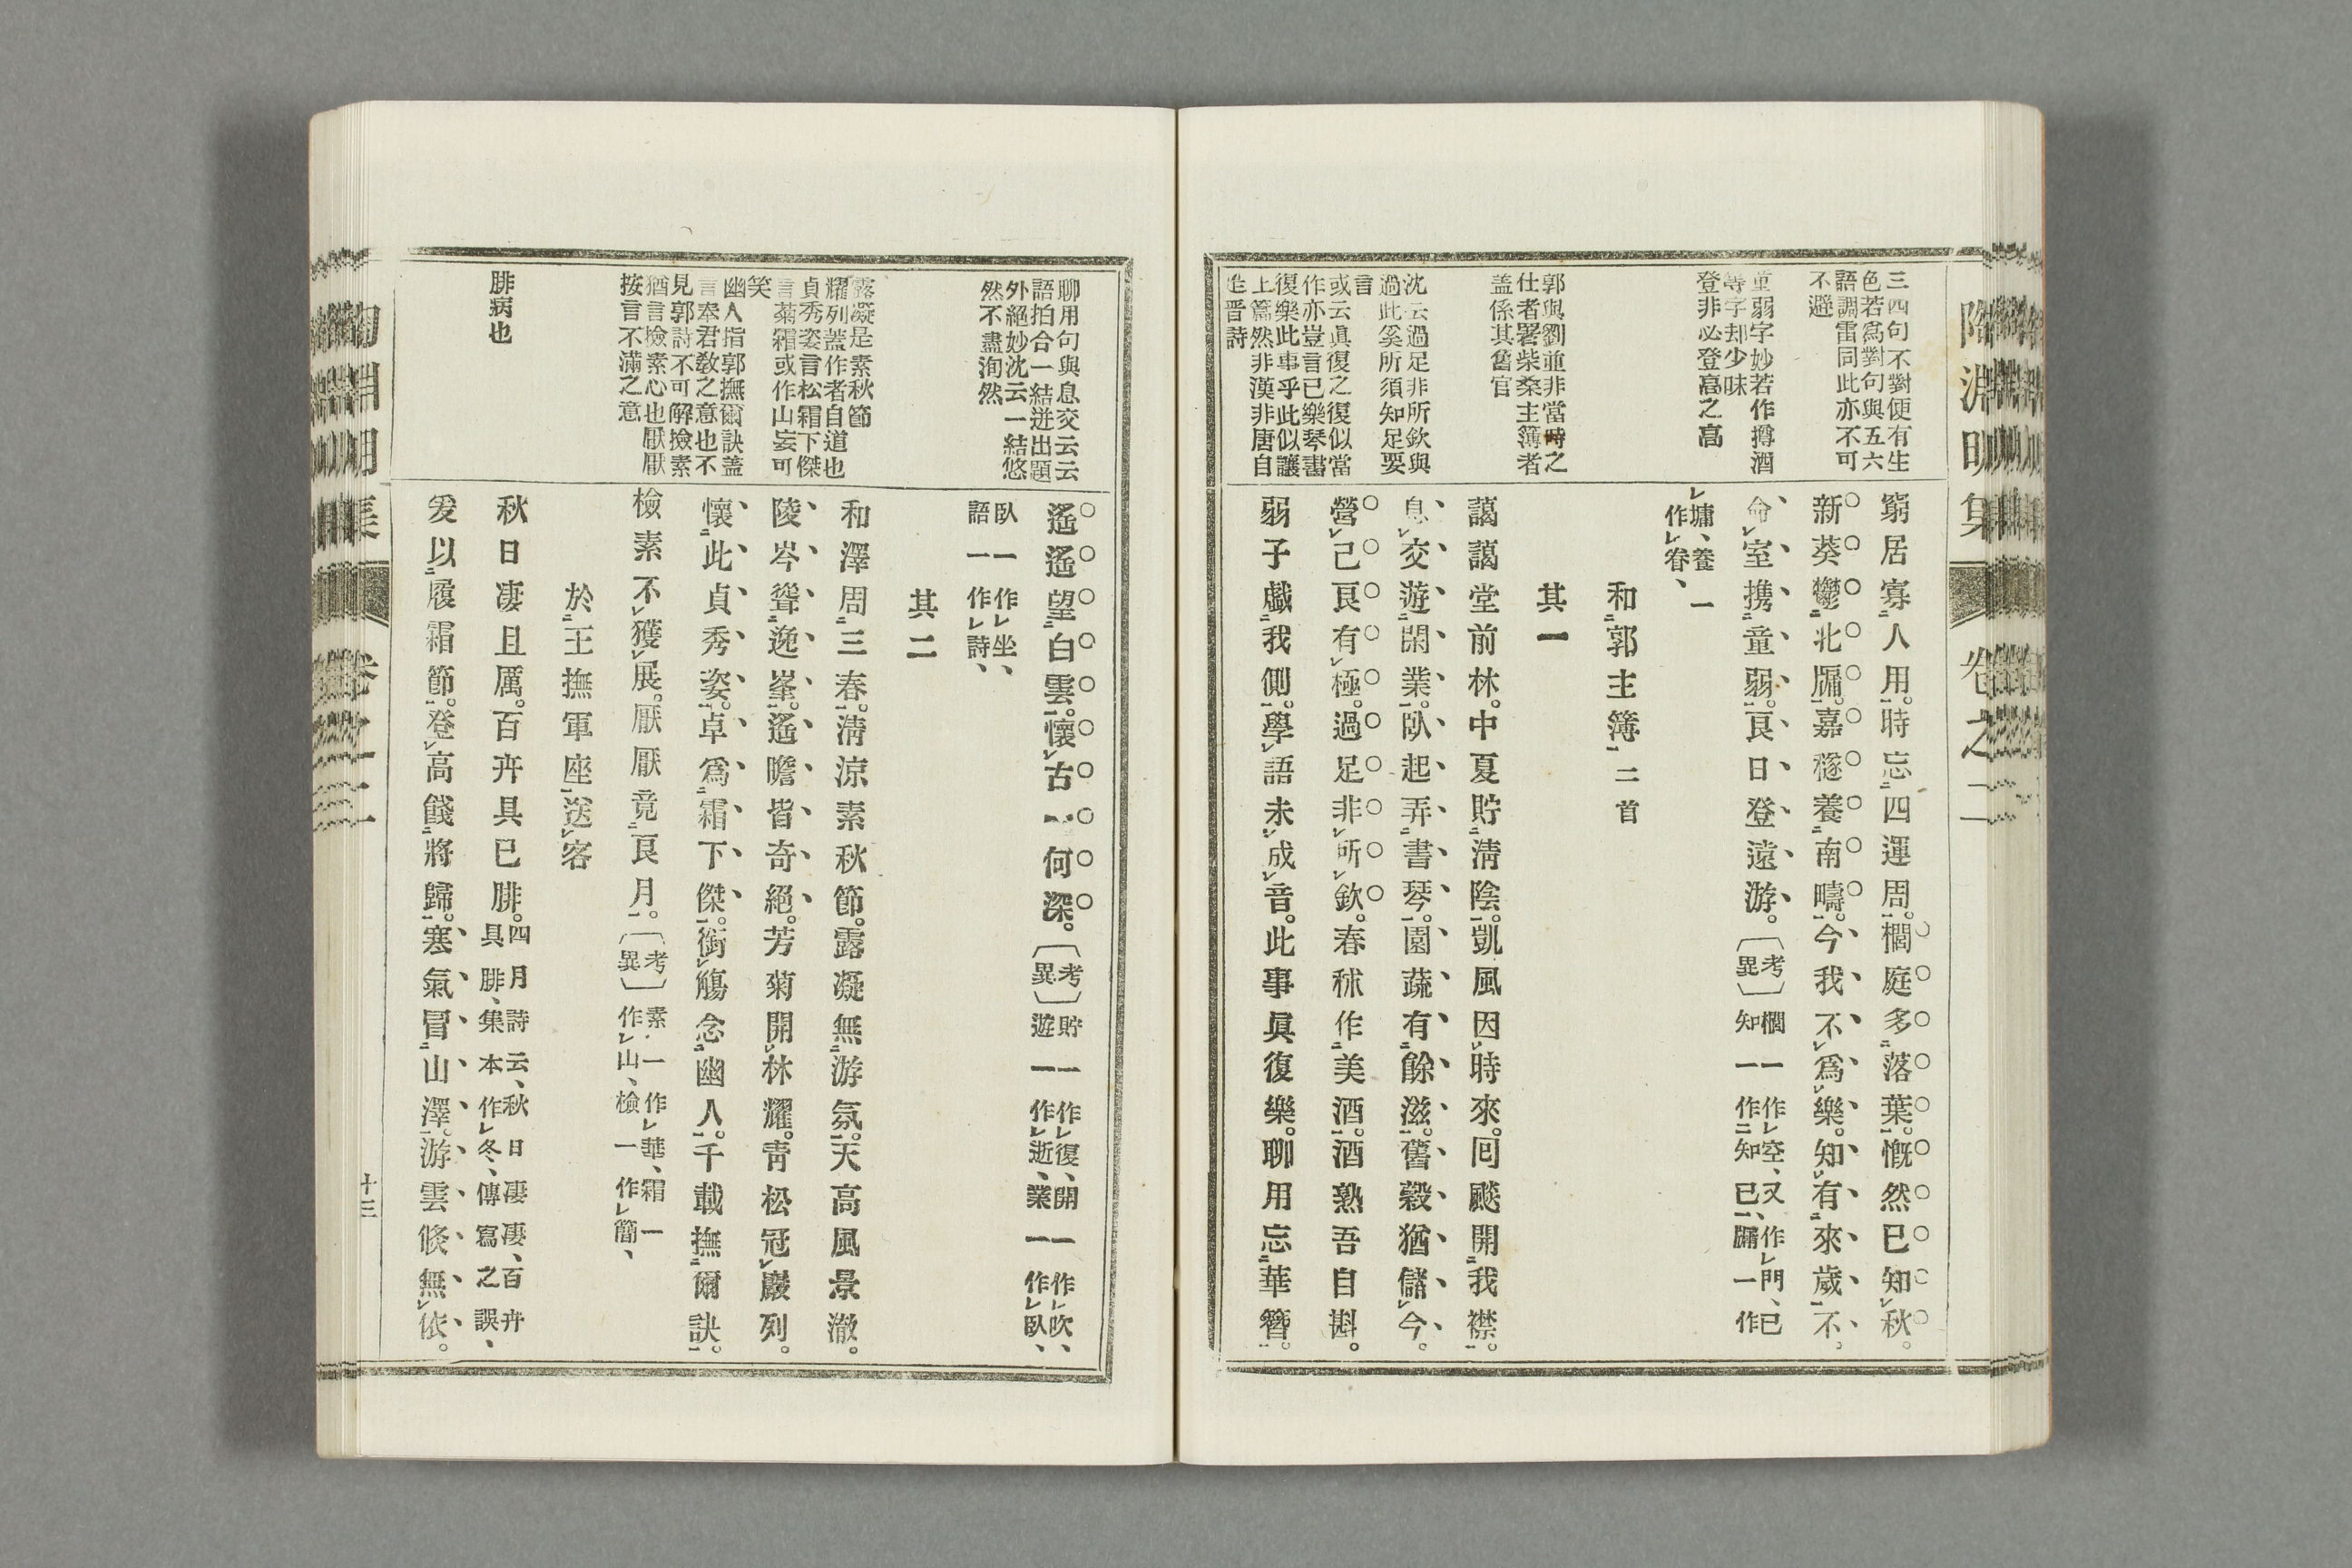 陶淵明集
卷之二
三四句不對便有生
色若爲對句與五六
語調雷同此亦不可
不避
童弱字妙若作撙酒
等字却少味
登非必登高之高
郭與劉並非當時之
仕者署柴桑主簿者
盖係其舊官
沈云過足非所欽與
過此奚所須知足要
言
或云眞復之復似當
作亦豈言已樂琴書
復樂此事乎此似讓
上篇然非漢非唐自
是晋詩
窮居寡人用。時忘四運周。櫚庭多落葉。慨然已知秋。
新葵鬱北牖。嘉穟養南疇。今我不爲樂。知有來歲不。
命室携童弱。良日登遠游。〔考異〕櫚一作レ空、又作レ門、已
知一作二知已一、牖一作
レ墉、養一
作レ眷、
和二郭主簿一二首
其一
藹藹堂前林。中夏貯淸陰。凱風因時來。回飈開我襟。
息交遊閑業。臥起弄書琴。園蔬有餘滋。舊穀猶儲今。
營己良有極。過足非所欽。春秫作美酒。酒熟吾自斟。
弱子戱我側。學語未成音。此事眞復樂。聊用忘華簪。
聊用句與息交云云
語拍合一結迸出題
外絕妙沈云一結悠
然不盡洵然
露凝是素秋節
耀列蓋作者自道也
貞秀姿言松霜下傑
言菊霜或作山妄可
笑
幽人指郭撫爾訣盖
言奉君教之意也不
見郭詩不可解撿素
猶言檢素心也厭厭
按言不滿之意
腓病也
遙遙望白雲。懷古一何深。〔考異〕貯一作レ復、開一作レ吹、
遊一作レ逝、業一作レ臥、
臥一作レ坐、
語一作レ詩、
其二
和澤周三春。淸涼素秋節。露凝無游氛。天高風景澈。
陵岑聳逸峯。遙瞻皆奇絕。芳菊開林耀。靑松冠巖列。
懷此貞秀姿。卓爲霜下傑。銜觴念幽人。千載撫爾訣。
檢素不獲展。厭厭竟良月。〔考異〕素一作レ華、霜一
作レ山、檢一作レ簡、
於二王撫軍座一送レ客
秋日凄且厲。百卉具已腓。四月詩云、秋日凄凄、百卉
具腓、集本作レ冬、傳寫之誤、
爰以履霜節。登高餞將歸。寒氣冒山澤。游雲倐無依。
陶淵明集
卷之二
十三